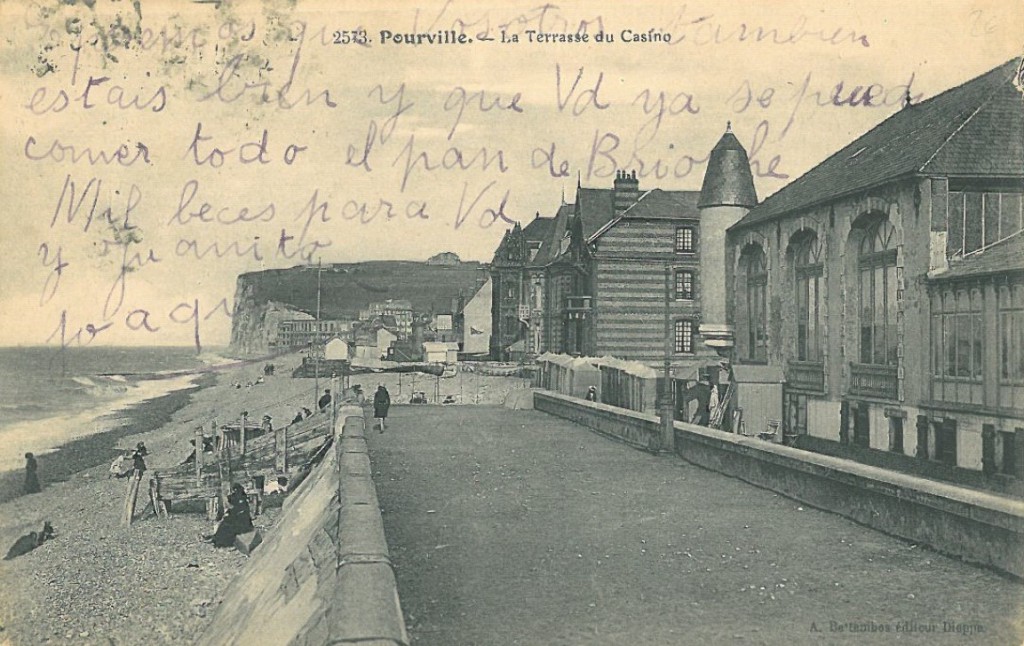 2573. Pourville. — La Terrasse du Casino
que Vosotros tambien
estais bien y que Vd ya se puede
comer todo el pan de Brioche
Mil beces para Vd
y Juanito
Joaq
A. Bertanlbos éditeur Dieppe